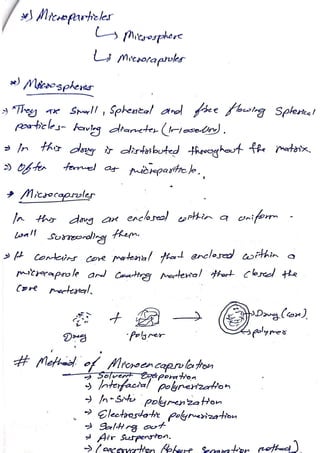 *) Microparticles
↳ Microsphere
↳ Microcapsules
*) Microspheres
→ They are Small, Spherical and free flowing Spherical
particles- having diameter (1-1000um).
⇒ In this drug is distributed throughout the matrix.
⇒ Often termed as microparticle.
→ Microcapsules
In this drug are enclosed within a uniform
wall surrounding them.
⇒ It contains core material that enclosed within a
microcapsule and coating material that closed the
core material.
+ → Drug (core).
Drug polymer → polymer
# Method of Microencapsulation
→ Solvent Evaporation
→ Interfacial polymerization
→ In-Situ polymerization
→ Electrostatic polymerization
→ Salting out
→ Air Suspension.
→ (Coacervation Phase Separation method)